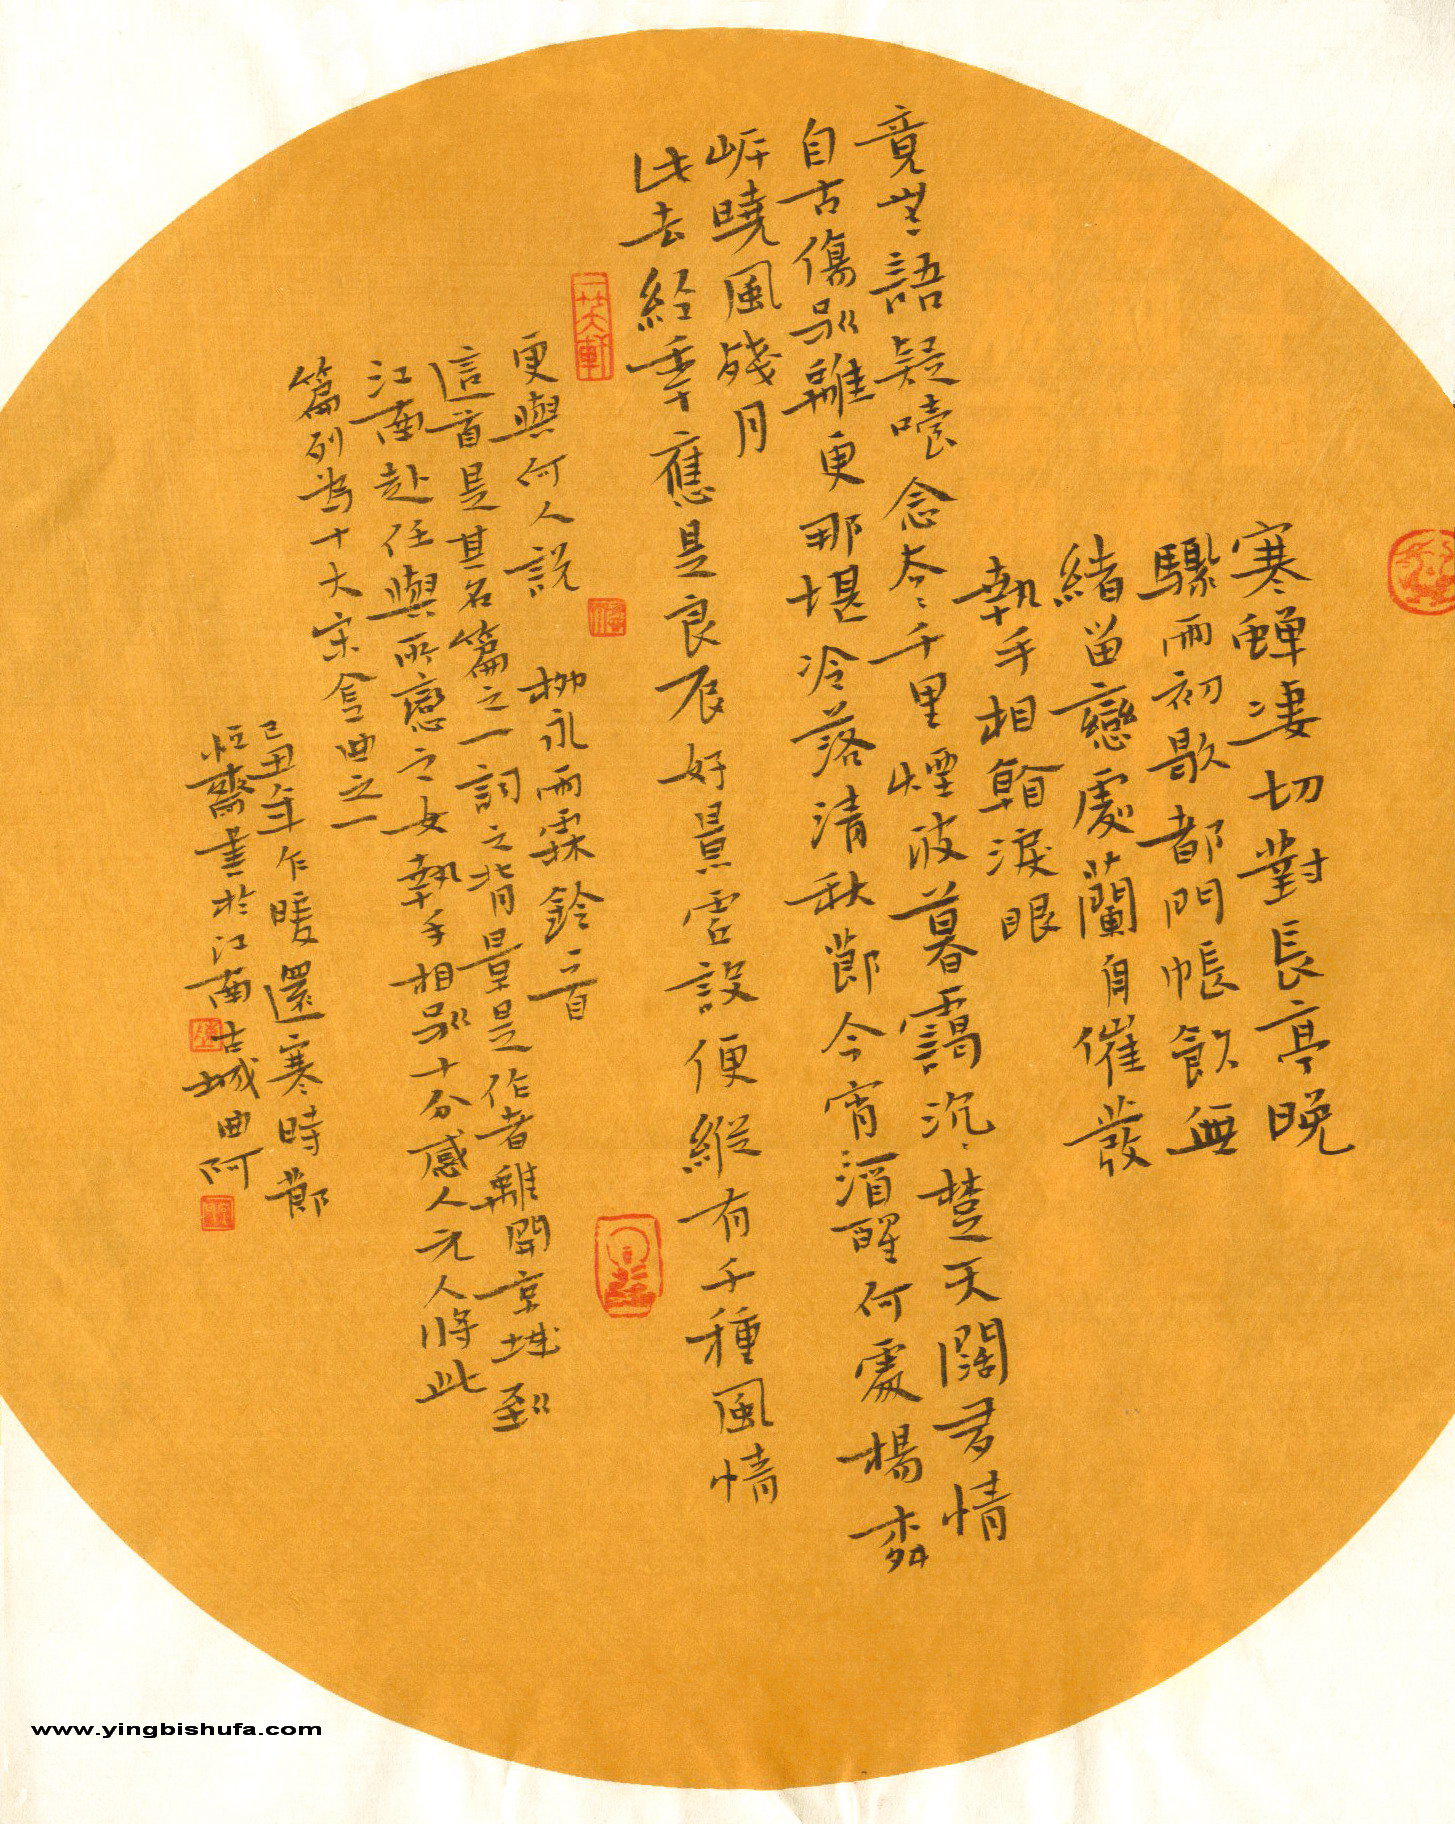 寒蟬淒切對長亭晚
驟雨初歇都門帳飲無
緒留戀處蘭舟催發
執手相看淚眼
竟無語凝噎念去去千里煙波暮靄沉沉楚天闊多情
自古傷別離更那堪冷落清秋節今宵酒醒何處楊柳
岸曉風殘月
此去經年應是良辰好景虛設便縱有千種風情
更與何人說 柳永雨霖鈴一首
這首是其名篇之一詞之背景是作者離開京城到
江南赴任與所戀之女執手相別十分感人元人將此
篇列為十大宋金曲之一
己丑年乍暖還寒時節
恒齋書於江南古城曲阿
www.yingbishufa.com